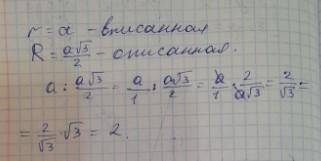 r = a - вписанная
R = a√3/2 - описанная.
a : a√3/2 = a/1 : a√3/2 = a/1 · 2/a√3 = 2/√3 =
= 2/√3 · √3 = 2.